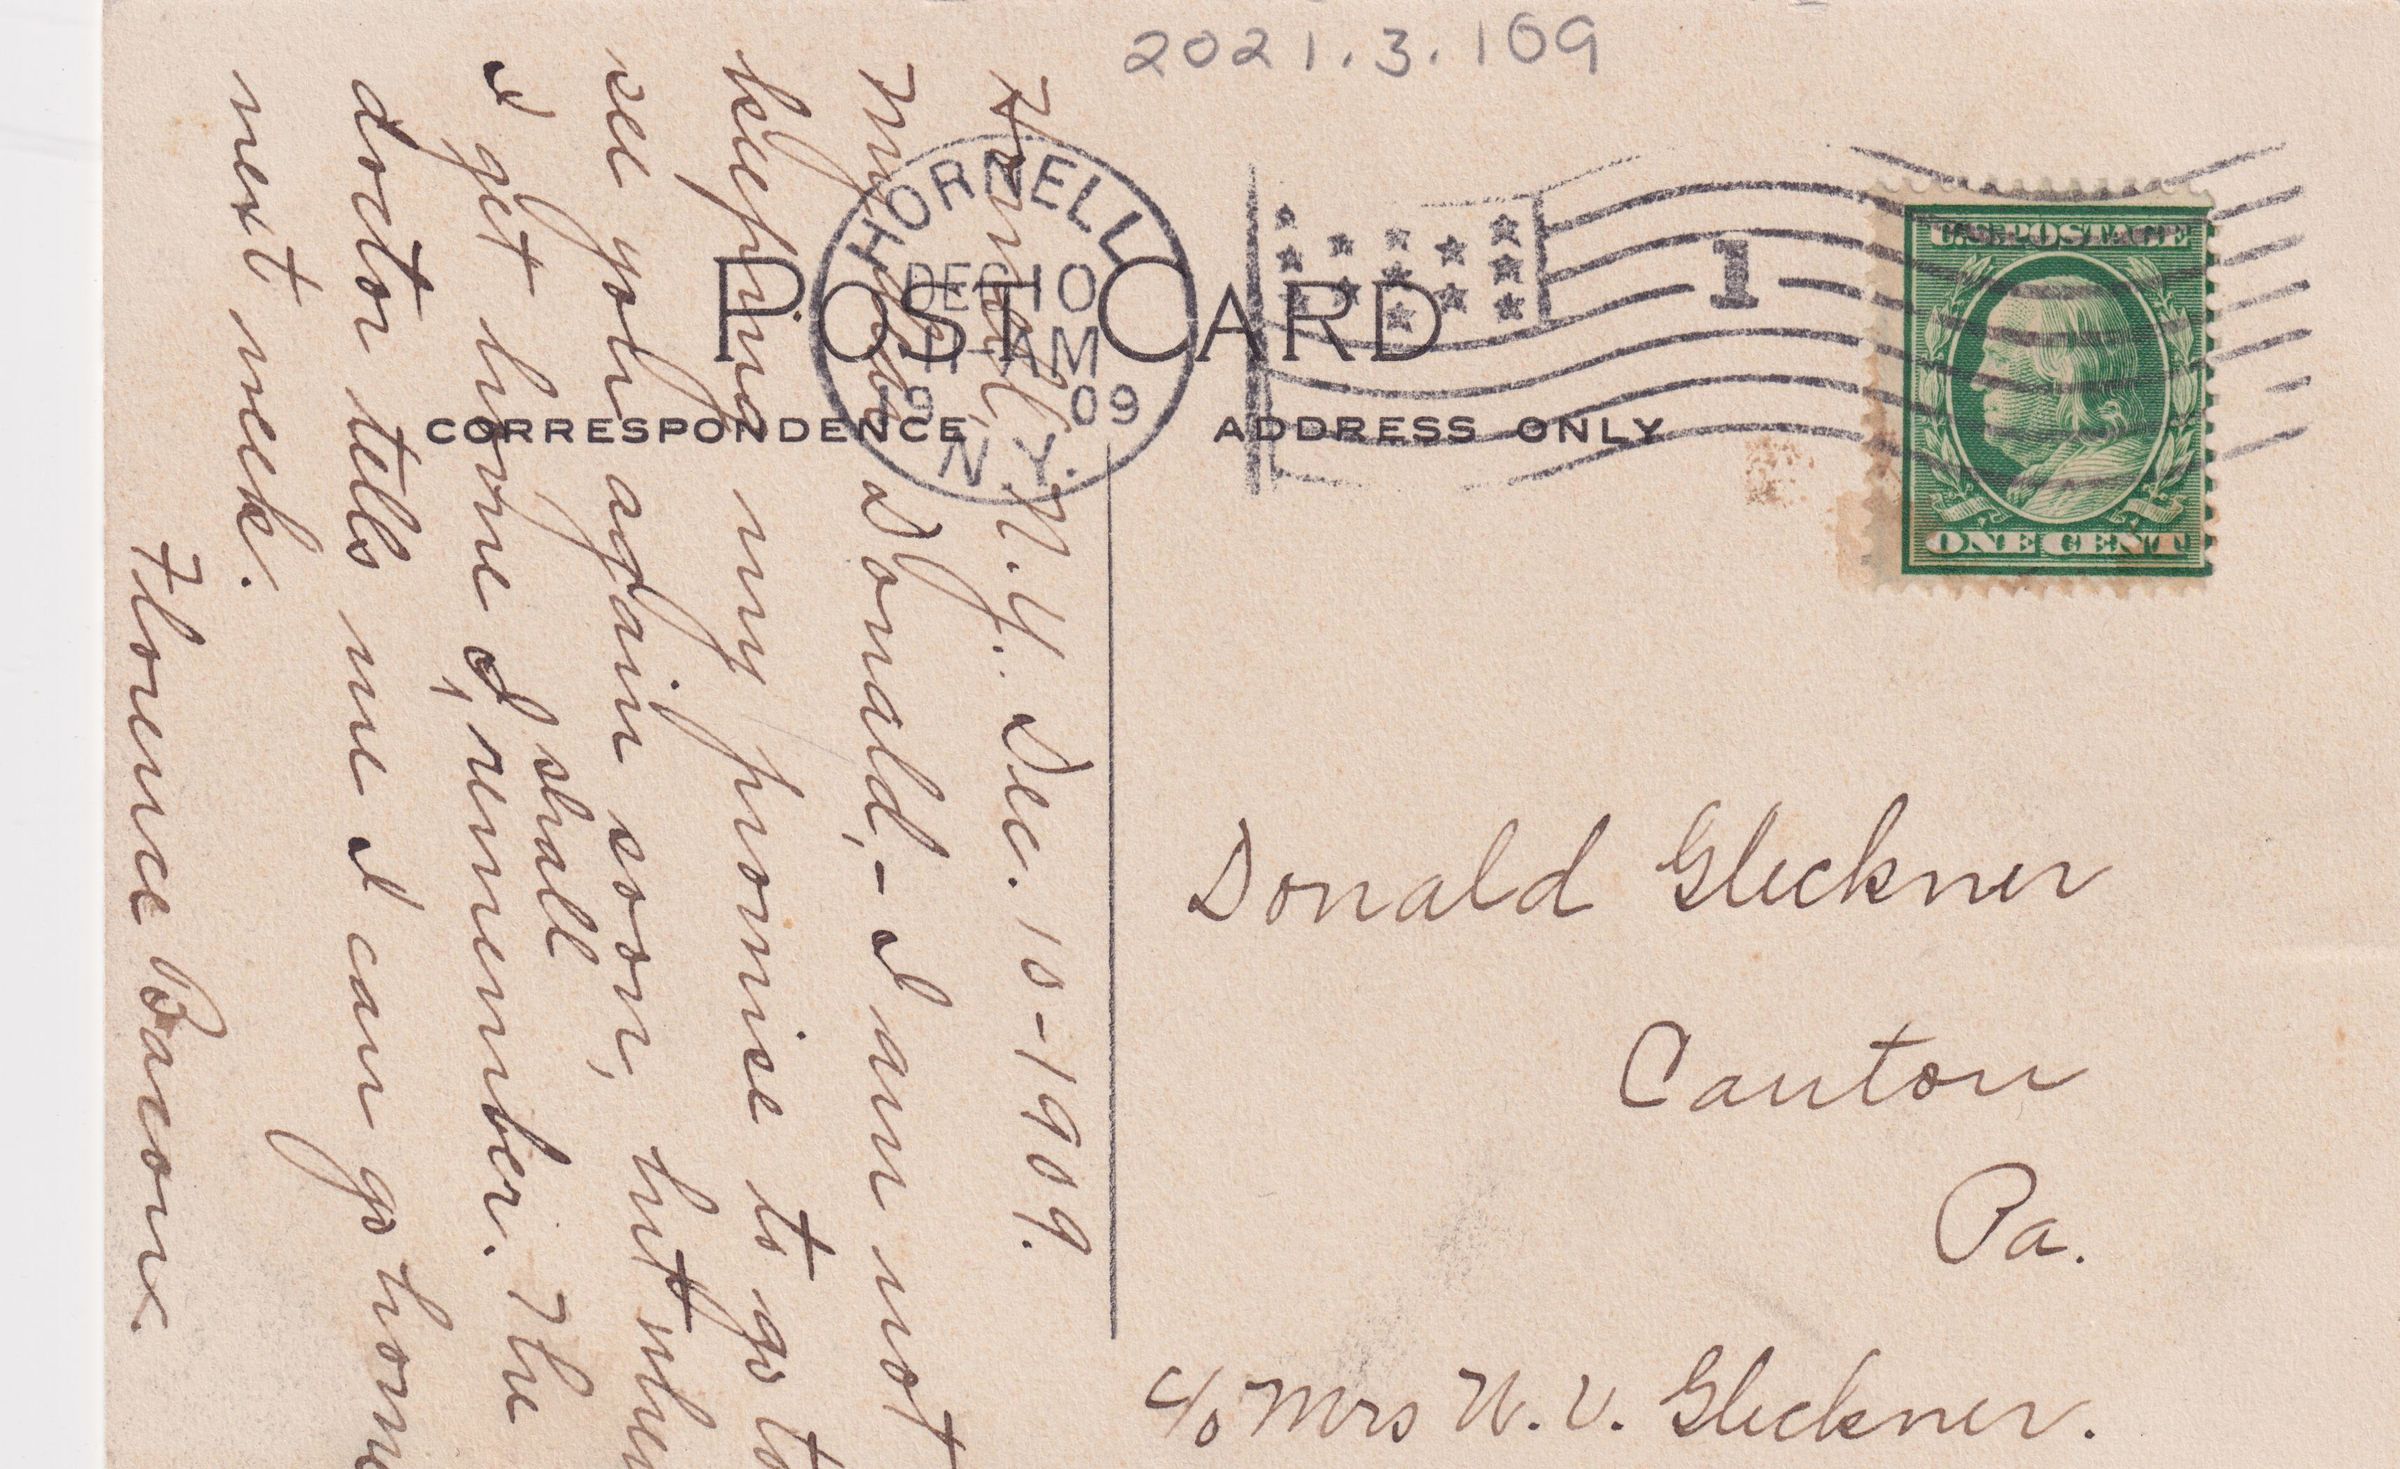 2021.3.109
HORNELL
DEC 10
AM
09
N.Y.
1
U.S. POSTAGE
ONE CENT
POST CARD
CORRESPONDENCE
ADDRESS ONLY
Hornell, N.Y. Dec. 10-1909.
My Donald,- I am not
keeping my promise to go to
see you again soon, but when
I get home I shall remember. The
doctor tells me I can go home
next week.
Florence Bacon.
Donald Gleckner
Canton
Pa.
c/o Mrs W. V. Gleckner.